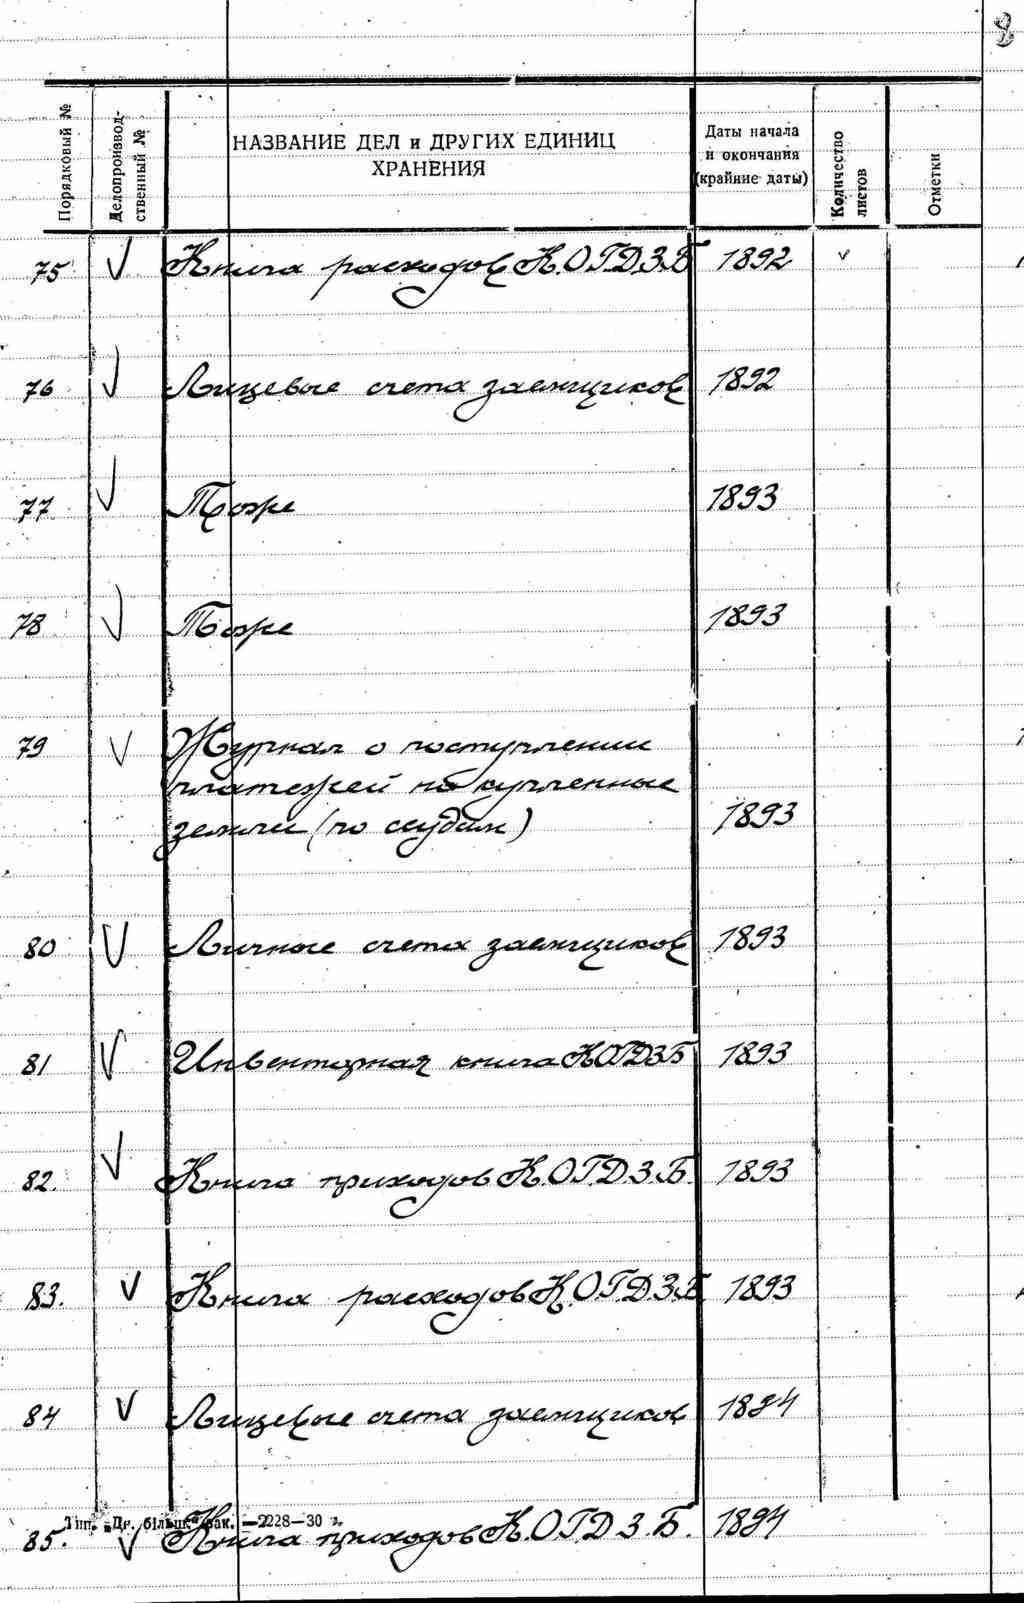 8
Порядковый №
Делопроизвод-
ственный №
НАЗВАНИЕ ДЕЛ и ДРУГИХ ЕДИНИЦ
ХРАНЕНИЯ
Даты начала
и окончания
(крайние даты)
Количество
листов
Отметки
75 V Книга расходов К.О.П.Д.З.Б 1892 v
76 V Лицевые счета заемщиков 1892
77 V Тоже 1893
78 V Тоже 1893
79 V Журнал о поступлении
платежей на купленные
земли (по ссудам) 1893
80 V Личные счета заемщиков 1893
81 V Инвентарная книга КОПДЗБ 1893
82. V Книга приходов К.О.П.Д.З.Б. 1893
83. V Книга расходов К.О.П.Д.З.Б 1893
84 V Лицевые счета заемщиков 1894
Тип. „Др. більш." Зак. —2228—30 г.
85. V Книга приходов К.О.П.Д.З.Б. 1894